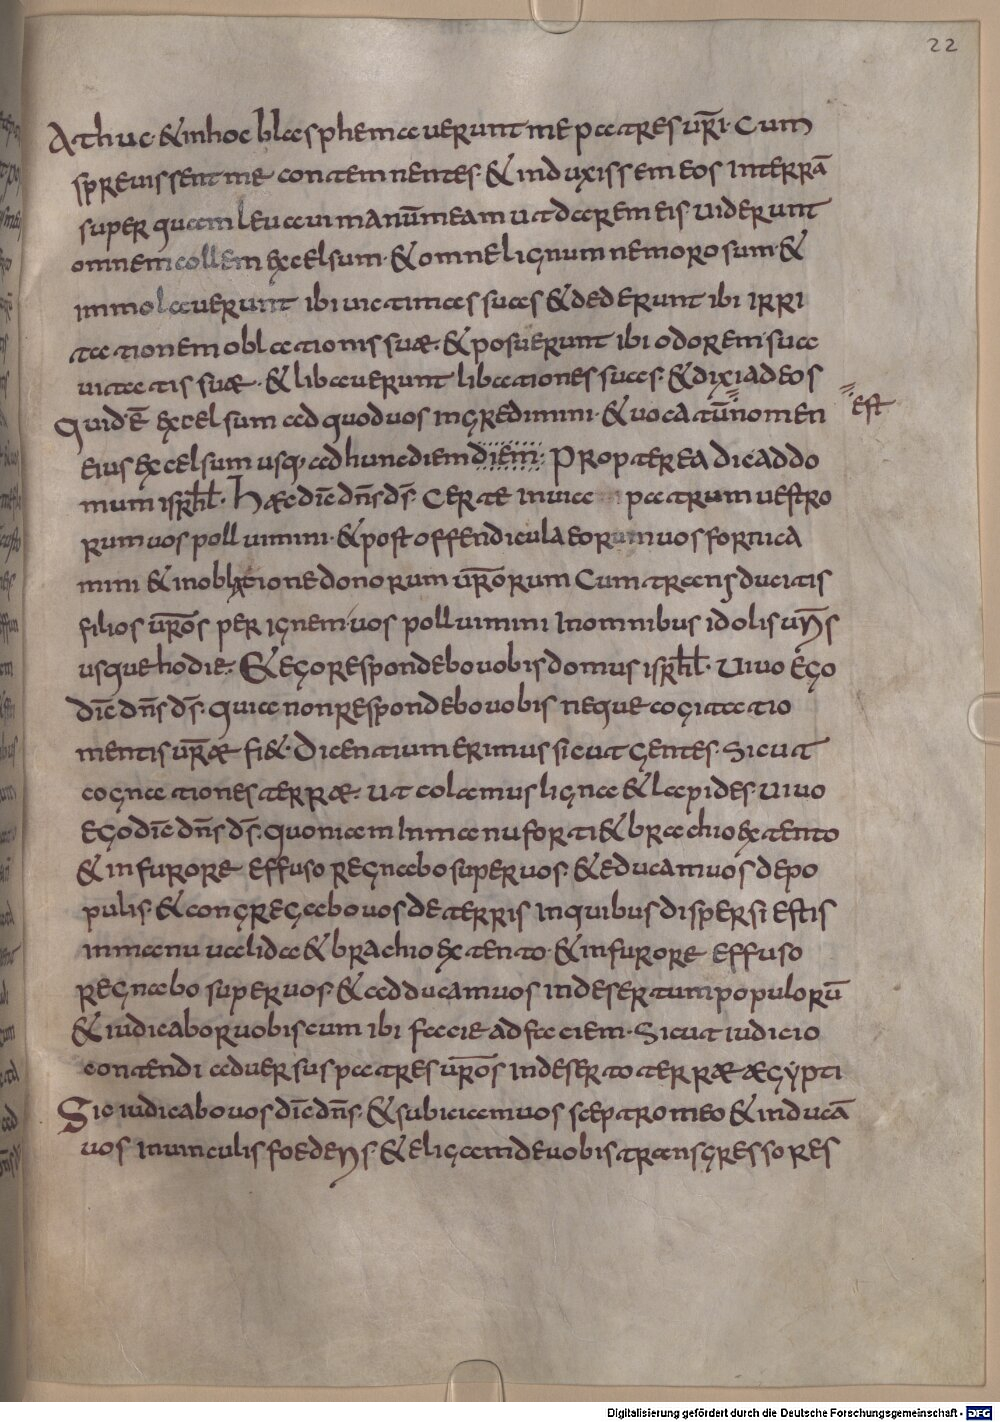 22
Athuc· &inhoc blasphemauerunt me patres ur̅i· Cum
spreuissent me contemnentes· & induxissem eos interrā
super quam leuaui manūmeam ut darem eis· uiderunt
omnem collem excelsum· & omne lignum nemorosum· &
immolauerunt ibi uictimas suas & dederunt ibi irri
tationem oblationis suæ· & posuerunt ibi odorem sua
uitatis suæ· & libauerunt libationes suas· & dixi ad eos
Quid ē excelsum ad quod uos ingredimini· & uocatū nomen
est
eius excelsum usq; ad hunc diem diem· Propterea dic ad do
mum isrƚ· Hæc dīc dn̄s ds̄· Certe in uia patrum uestro
rum uos polluimini· & post offendicula eorum uos fornica
mini & in oblatione donorum ur̅orum Cum transducitis
filios ur̅os per ignem uos polluimini In omnibus idolis ur̅is
usque hodie· & ego respondebo uobis domus isrƚ· Uiuo ego
dīc dn̄s ds̄· quia non respondebo uobis neque cogitatio
mentis ur̅æ fi&· Dicentium erimus sicut gentes· Sicut
cognationes terræ· Ut colamus ligna & lapides· Uiuo
ego dīc dn̄s ds̄· quoniam In manu forti & brachio extento
& in furore effuso regnabo super uos· & educam uos de po
pulis· & congregabo uos de terris In quibus dispersi estis
In manu ualida & brachio extento· & in furore effuso
regnabo super uos· & adducam uos in desertum populorū
& iudicabor uobiscum ibi facie ad faciem· Sicut iudicio
contendi aduersus patres ur̅os in deserto terræ ægypti
Sic iudicabo uos dīc dn̄s· & subiciam uos sceptro meo & inducā
uos in uinculis foederis· & eligam de uobis transgressores
Digitalisierung gefördert durch die Deutsche Forschungsgemeinschaft - DFG